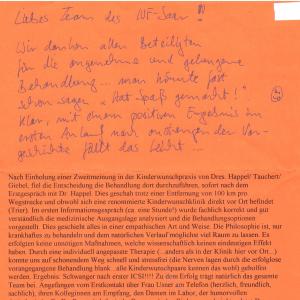 Liebes Team des IVF-Saar!!
Wir danken allen Beteiligten
für die angenehme und gelungene
Behandlung... man könnte fast
schon sagen "Hat Spaß gemacht!"
Klar, mit einem positiven Ergebnis im
ersten Anlauf nach
fällt das leicht...
Nach Einholung einer Zweitmeinung in der Kinderwunschpraxis von Dres. Happel/ Tauchert/
Giebel, fiel die Entscheidung die Behandlung dort durchführen, sofort nach dem
Erstgespräch mit Dr. Happel. Dies geschah trotz einer Entfernung von 100 km pro
Wegstrecke und obwohl sich eine renommierte Kinderwunschklinik direkt vor Ort befindet
(Trier). Im ersten Informationsgespräch (ca. eine Stunde!) wurde fachlich korrekt und gut
verständlich die medizinische Ausgangslage analysiert und die Behandlungsoptionen
vorgestellt. Dies geschieht alles in einer empathischen Art und Weise. Die Philosophie ist, nur
krankhaftes zu behandeln und dem natürlichen Verlauf möglichst viel Raum zu lassen. Es
erfolgten keine unnötigen Maßnahmen, welche wissenschaftlich keinen eindeutigen Effekt
haben. Durch eine individuell angepasste Therapie (...anders als in der Klinik hier vor Ort...)
konnte uns auf schonendem Weg schnell und stressfrei (die Nerven lagen durch die erfolglose
vorangegangene Behandlung blank...alle Kinderwunschpaare kennen das wohl) geholfen
werden. Ergebnis: Schwanger nach erster ICSI!!!! Zu dem Erfolg trägt natürlich das gesamte
Team bei. Angefangen vom Erstkontakt über Frau Usner am Telefon (herzlich, freundlich,
sachlich), ihren Kolleginnen am Empfang, den Damen im Labor, der humorvollen